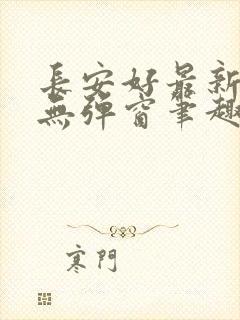 長安好最新
無彈窗筆趣
寒門